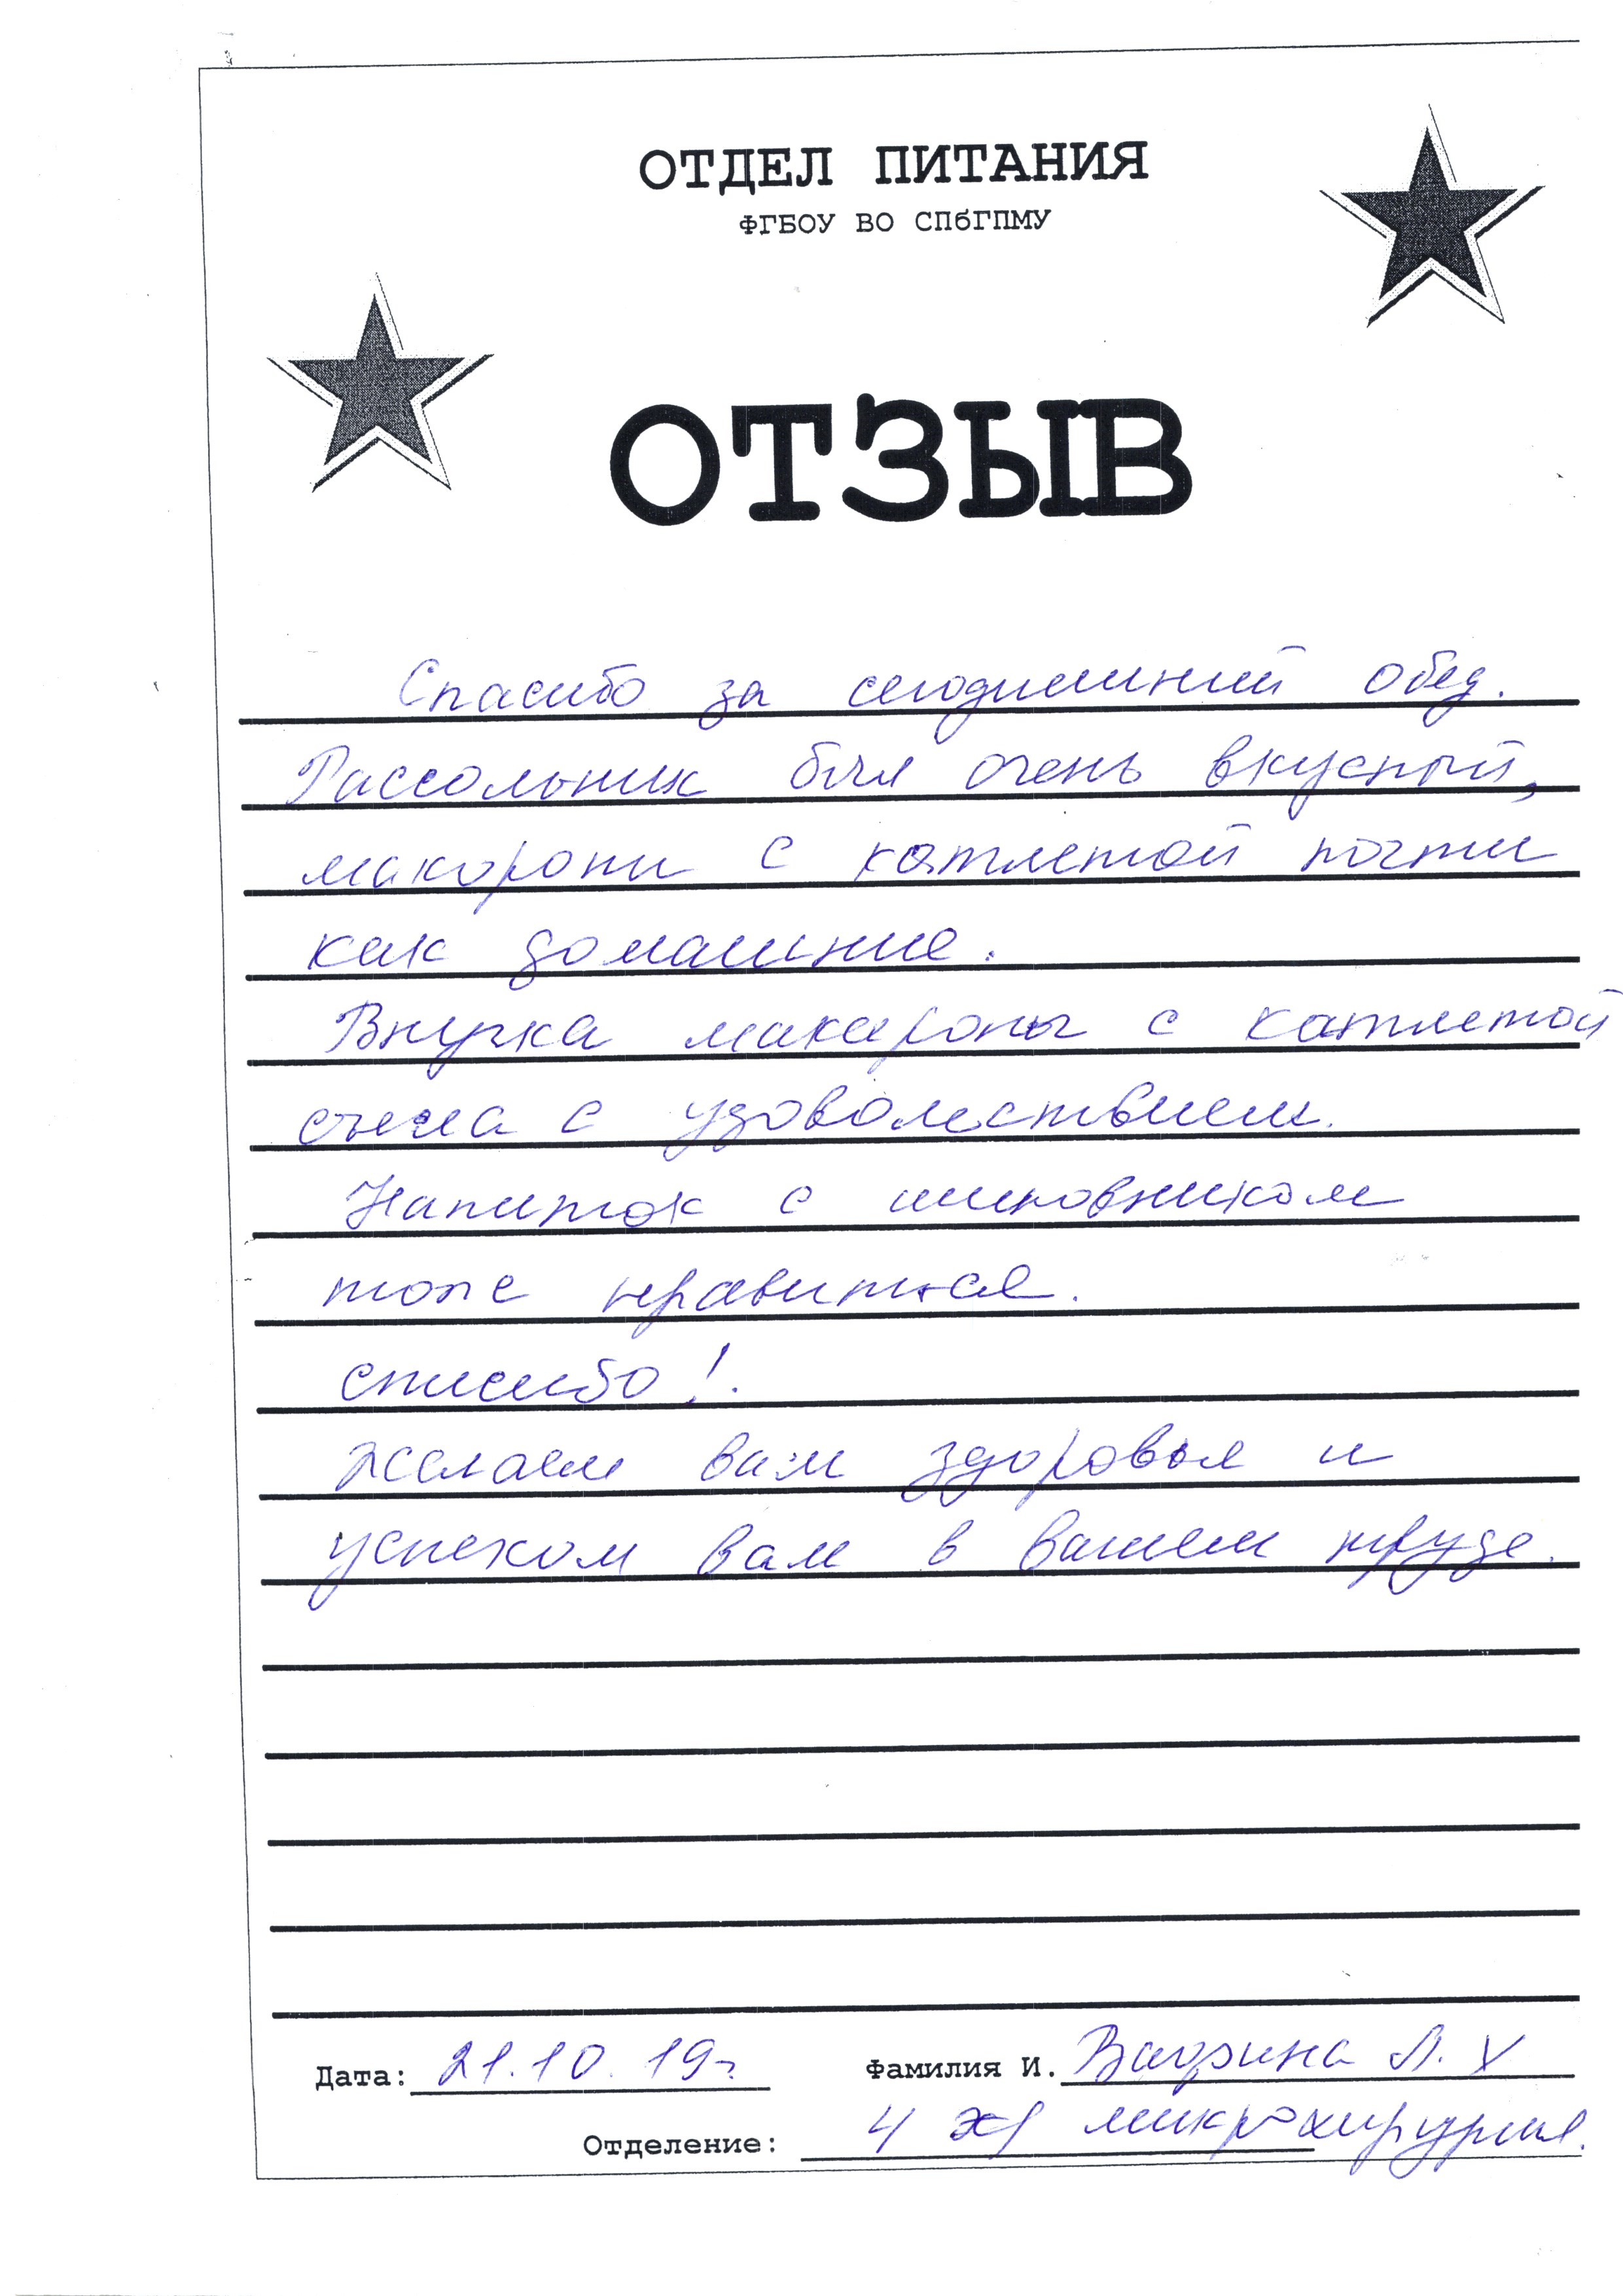 ОТДЕЛ ПИТАНИЯ
ФГБОУ ВО СПбГПМУ
ОТЗЫВ
Спасибо за сегодняшний обед.
Рассольник был очень вкусный,
макорони с котлетой почти
как домашние.
Внучка макароны с катлетой
съела с удоволствием.
Напиток с шиповником
тоже нравится.
спасибо!.
желаем вам здоровья и
успехом вам в вашем труде.
Дата: 21.10.19г Фамилия И. Л. Х
Отделение: 4 хр микрохирургия.